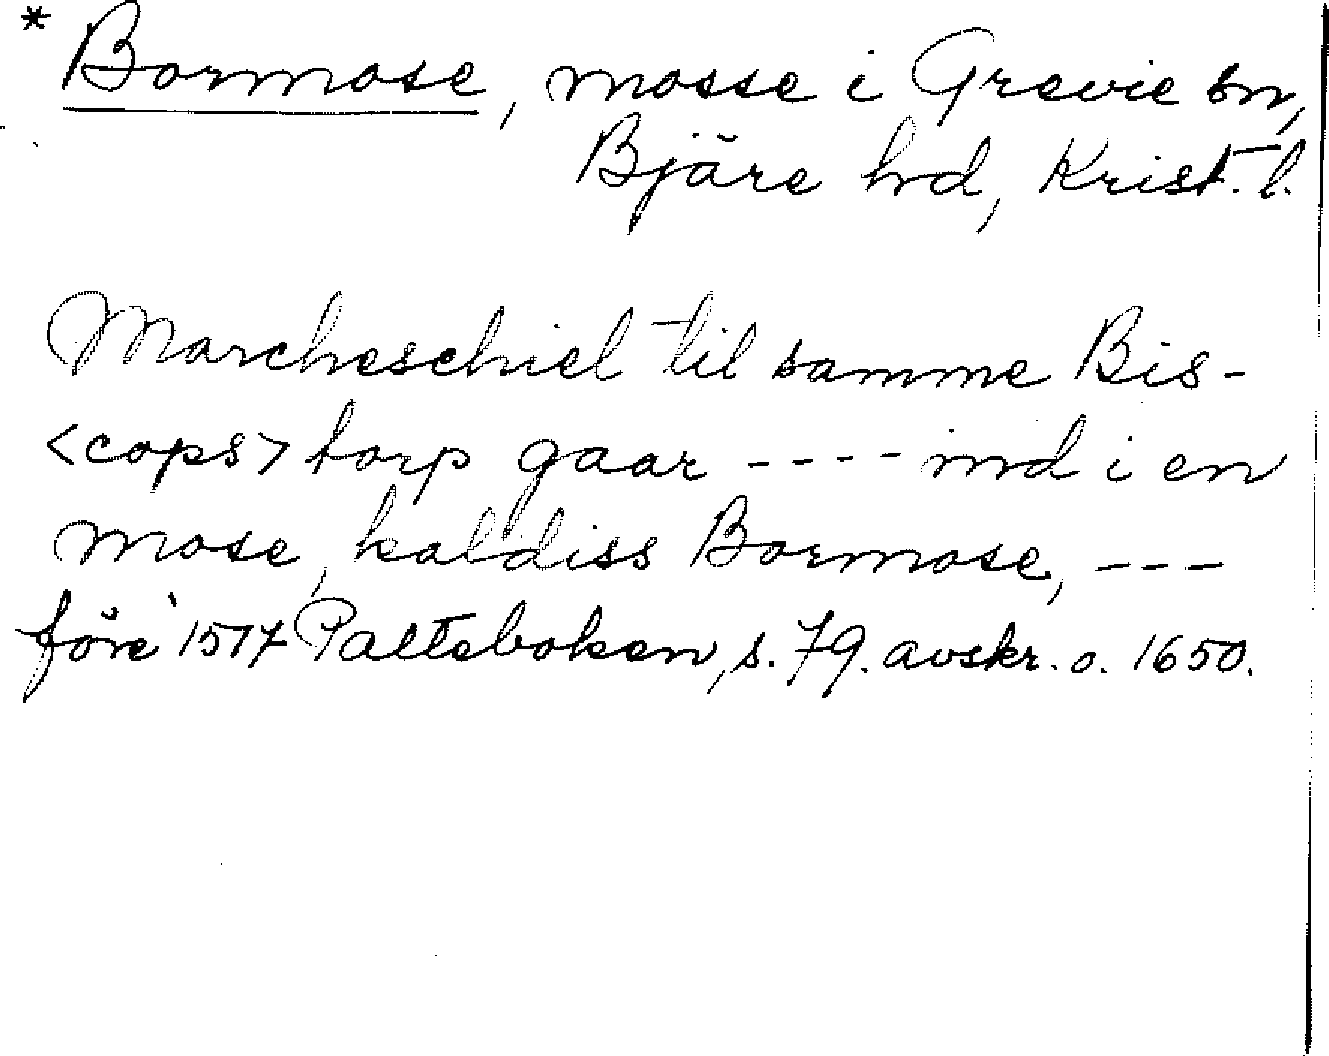 * Bormose, mosse i Grevie sn,
Bjäre hd, Krist. l.
Marcheschiel til samme Bis-
<cops> torp gaar ---- ind i en
mose, kaldiss Bormose, ---
före 1517 Palteboken, s. 79. avskr. o. 1650.